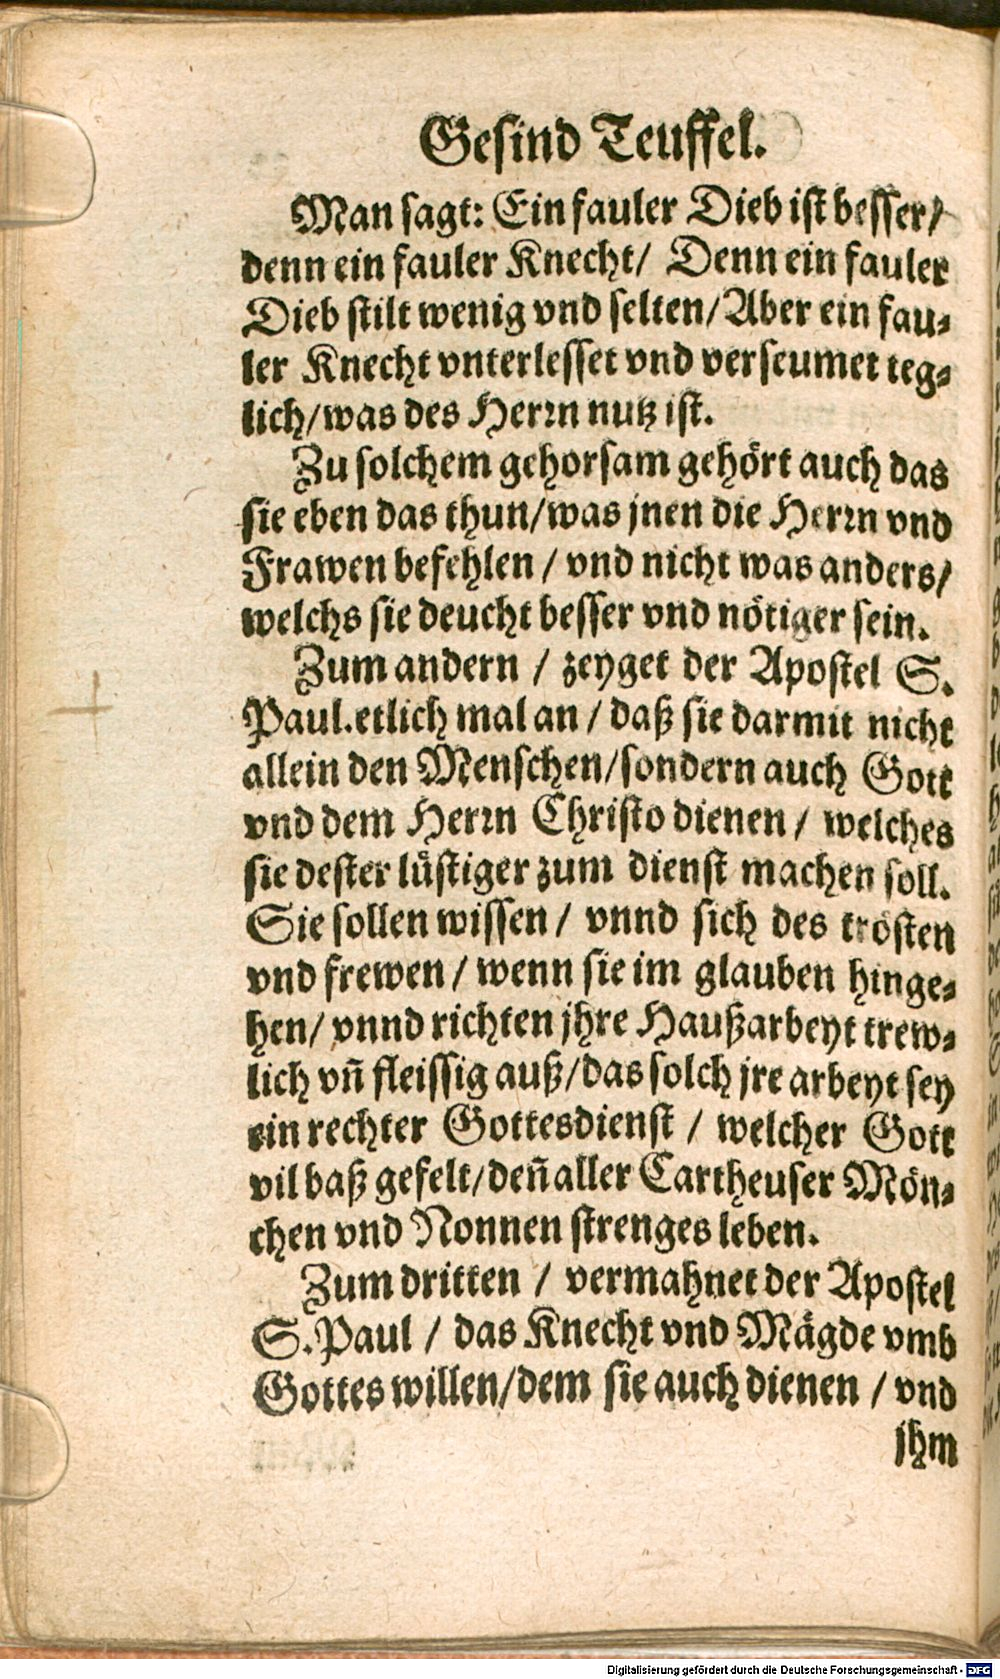 Gesind Teuffel.
Man sagt: Ein fauler Dieb ist besser/
denn ein fauler Knecht/ Denn ein fauler
Dieb stilt wenig vnd selten/Aber ein fau⸗
ler Knecht vnterlesset vnd verseumet teg⸗
lich/was des Herrn nutz ist.
Zu solchem gehorsam gehört auch das
sie eben das thun/was jnen die Herrn vnd
Frawen befehlen / vnd nicht was anders/
welchs sie deucht besser vnd nötiger sein.
Zum andern / zeyget der Apostel S.
Paul.etlich mal an / daß sie darmit nicht
allein den Menschen/sondern auch Gott
vnd dem Herrn Christo dienen / welches
sie dester lüstiger zum dienst machen soll.
Sie sollen wissen / vnnd sich des trösten
vnd frewen / wenn sie im glauben hinge⸗
hen/ vnnd richten jhre Haußarbeyt trew⸗
lich vñ fleissig auß/das solch jre arbeyt sey
ein rechter Gottesdienst / welcher Gott
vil baß gefelt/deñ aller Cartheuser Mön⸗
chen vnd Nonnen strenges leben.
Zum dritten / vermahnet der Apostel
S.Paul / das Knecht vnd Mägde vmb
Gottes willen/dem sie auch dienen / vnd
jhm
Digitalisierung gefördert durch die Deutsche Forschungsgemeinschaft - DFG